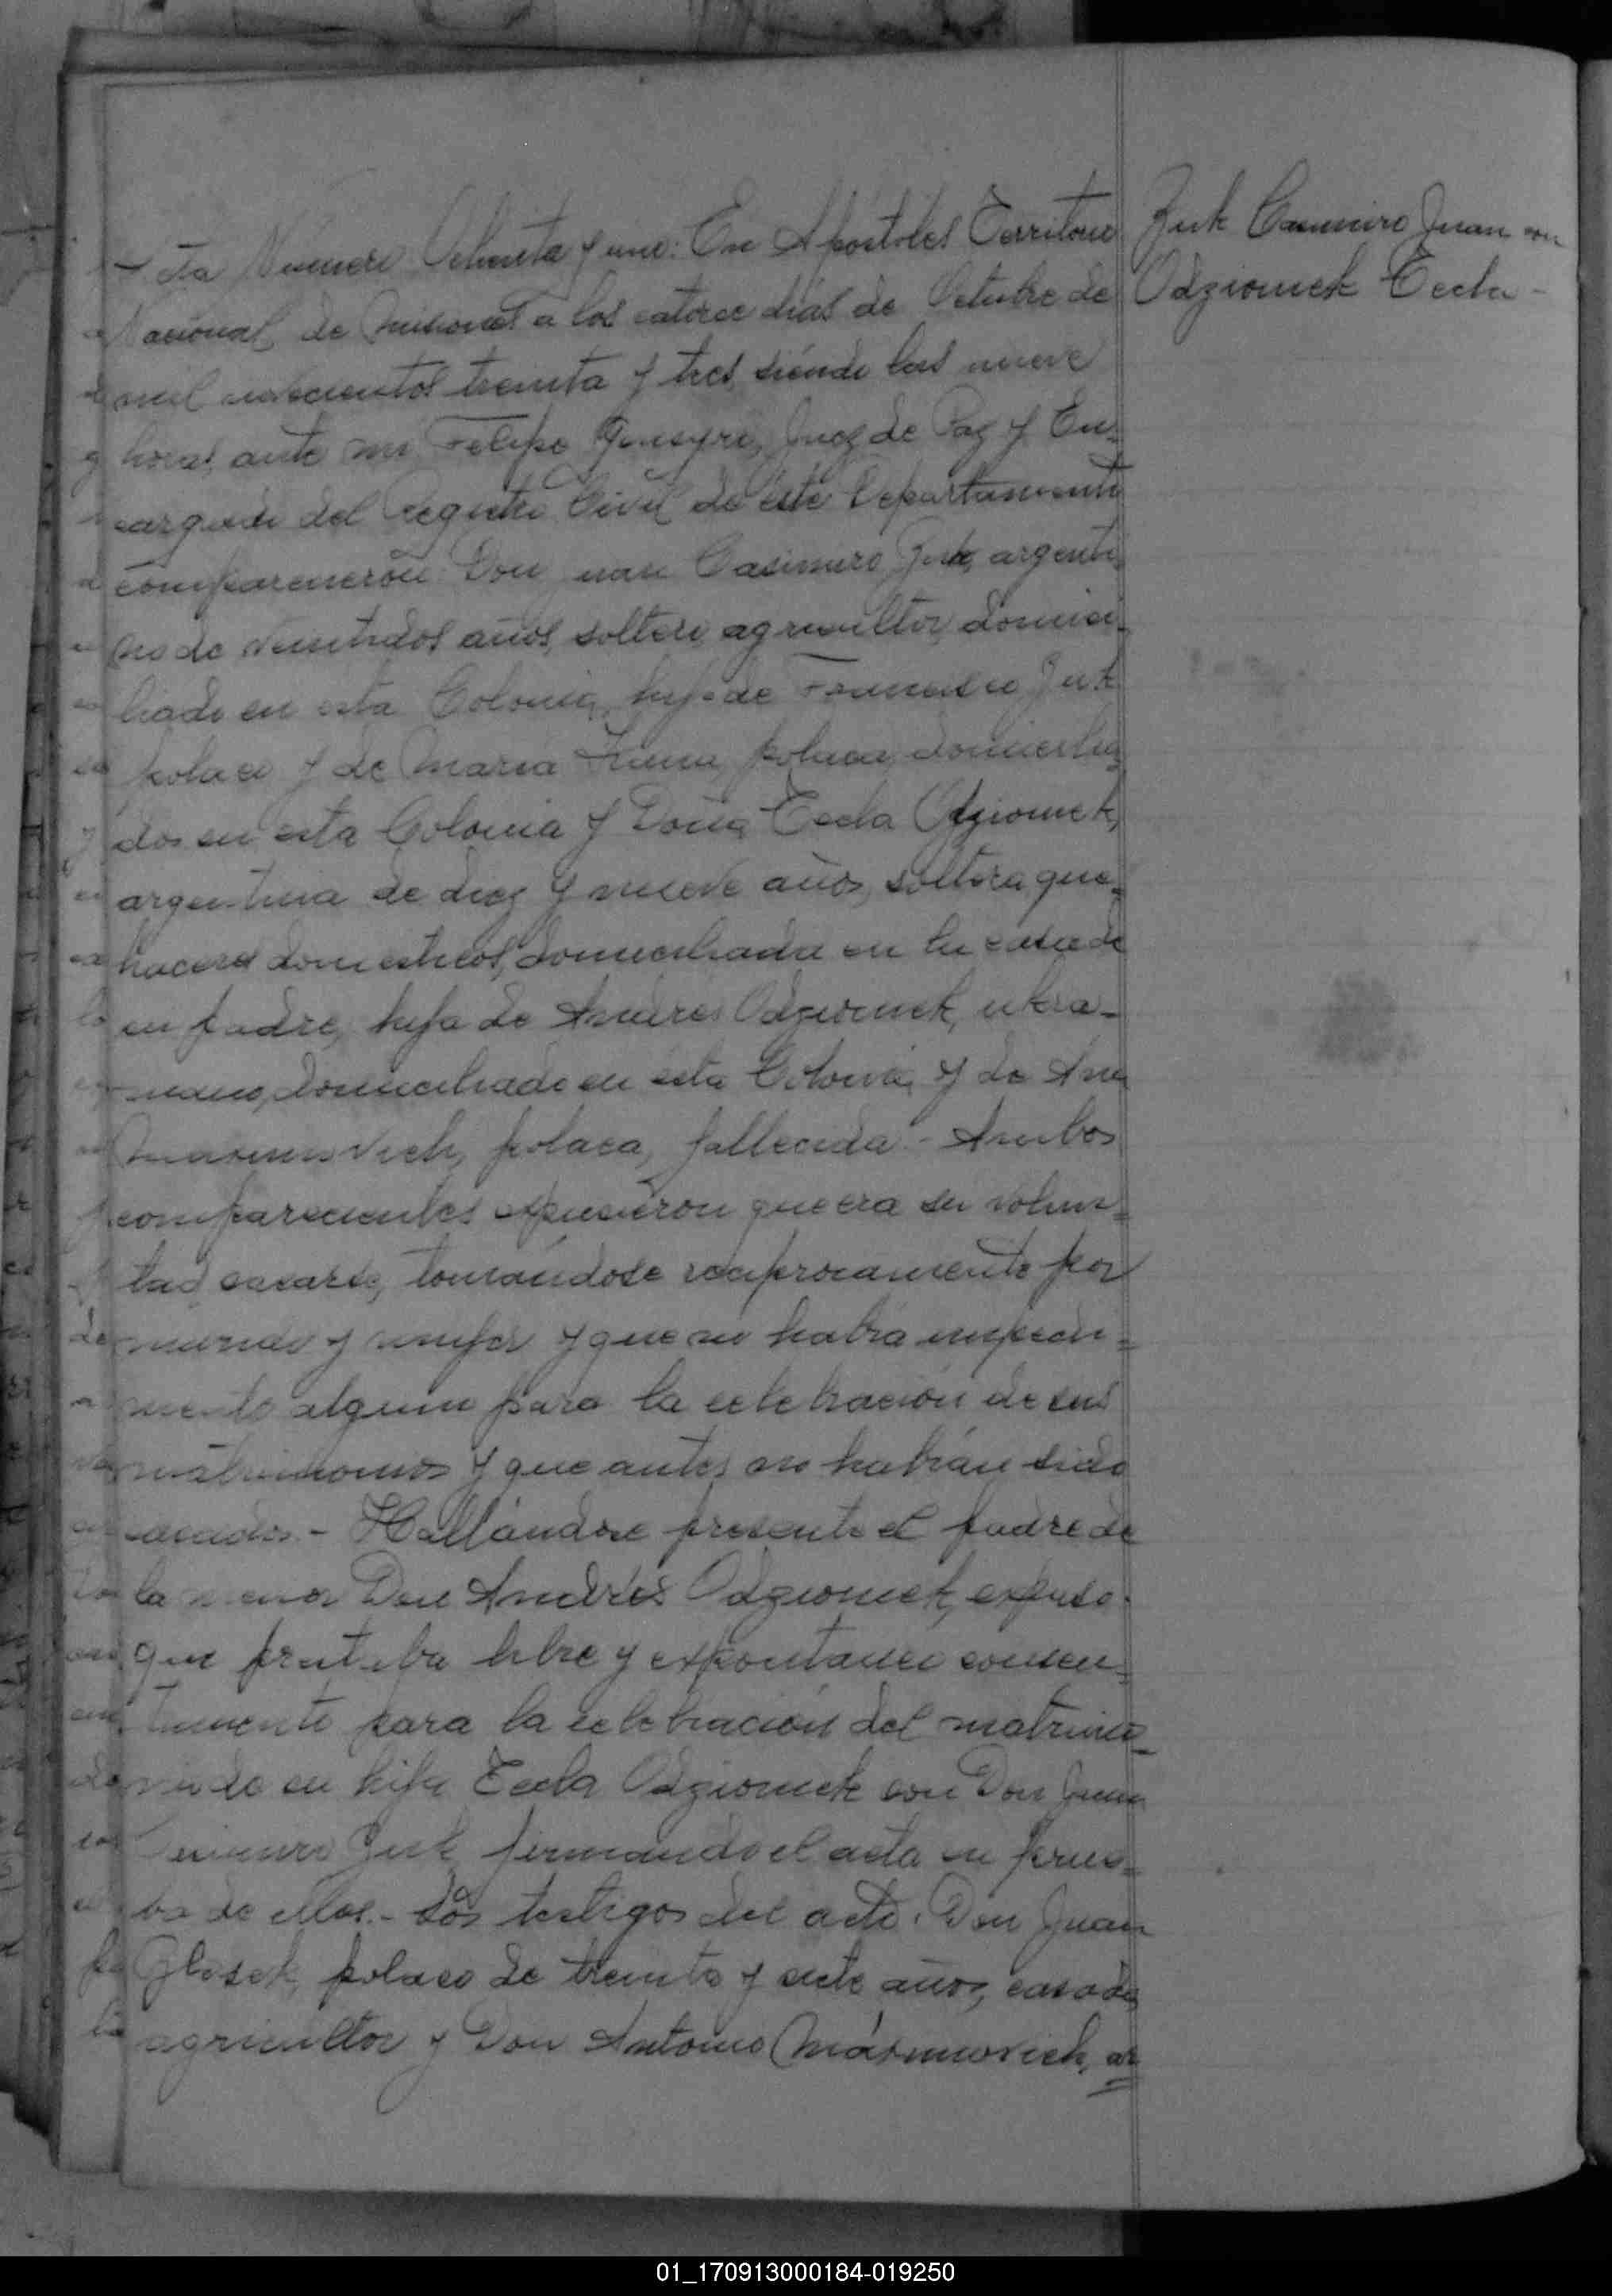 Acta Numero Ochenta y uno: En Apostoles Territorio
Nacional de Misiones a los catorce dias de Octubre de
mil novecientos treinta y tres, siendo las nueve
horas, ante mi Felipe Juez de Paz y En-
cargado del Registro Civil de este Departamento
comparecieron: Don Juan Casimiro Zuk, argenti-
no de veintidos años, soltero, agricultor, domici-
liado en esta Colonia, hijo de Francisco Zuk
polaco y de Maria polaca, domicilia-
dos en esta Colonia y Doña Tecla Odziomek,
argentina de diez y nueve años, soltera, que-
haceres domesticos, domiciliada en la casa de
su padre, hija de Andrés Odziomek, ukra-
niano, domiciliado en esta Colonia, y de Ana
polaca, fallecida.- Ambos
comparecientes expusieron que era su volun-
tad casarse, tomándose reciprocamente por
marido y mujer y que no habia impedi-
mento alguno para la celebracion de sus
matrimonios y que antes no habian sido
casados.- Hallándose presente el padre de
la menor Don Andrés Odziomek, expuso
que prestaba libre y espontaneo consen-
timiento para la celebración del matrimo-
nio de su hija Tecla Odziomek con Don Juan
Casimiro Zuk firmando el acta en prue-
ba de ellos.- Los testigos del acto: Don Juan
polaco de treinta y siete años, casado
agricultor y Don Antonio ar
Zuk Casimiro Juan con
Odziomek Tecla-
01_170913000184-019250